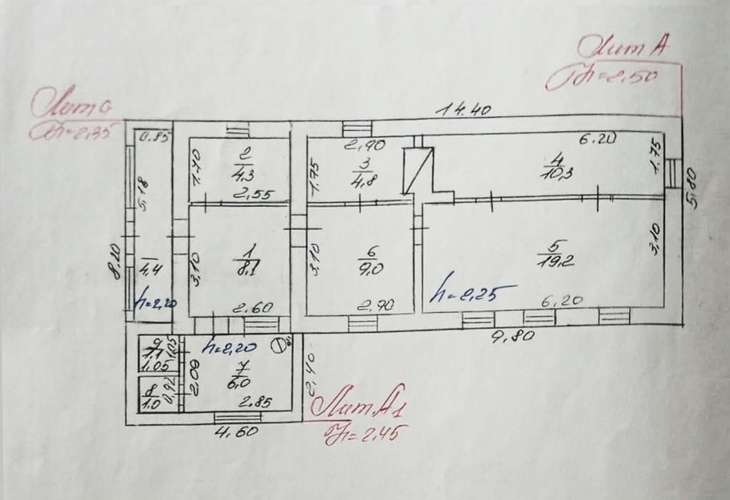 Лит А
h=2.50
14.40
Лит а
h=2.35
0.85
5.18
8.20
4,4
h=2,20
2
4.3
1.70
2,55
2,90
1,75
3
4,8
6.20
4
10,3
1,75
5,80
3,10
1
8,1
2.60
3,10
6
9,0
2,90
5
19,2
3,10
h=2,25
6,20
9,80
9
1,1
1,05
1.05
8
1.0
0,92
2,00
h=2,20
7
6,0
2.85
2,40
4,60
Лит А1
h=2.45